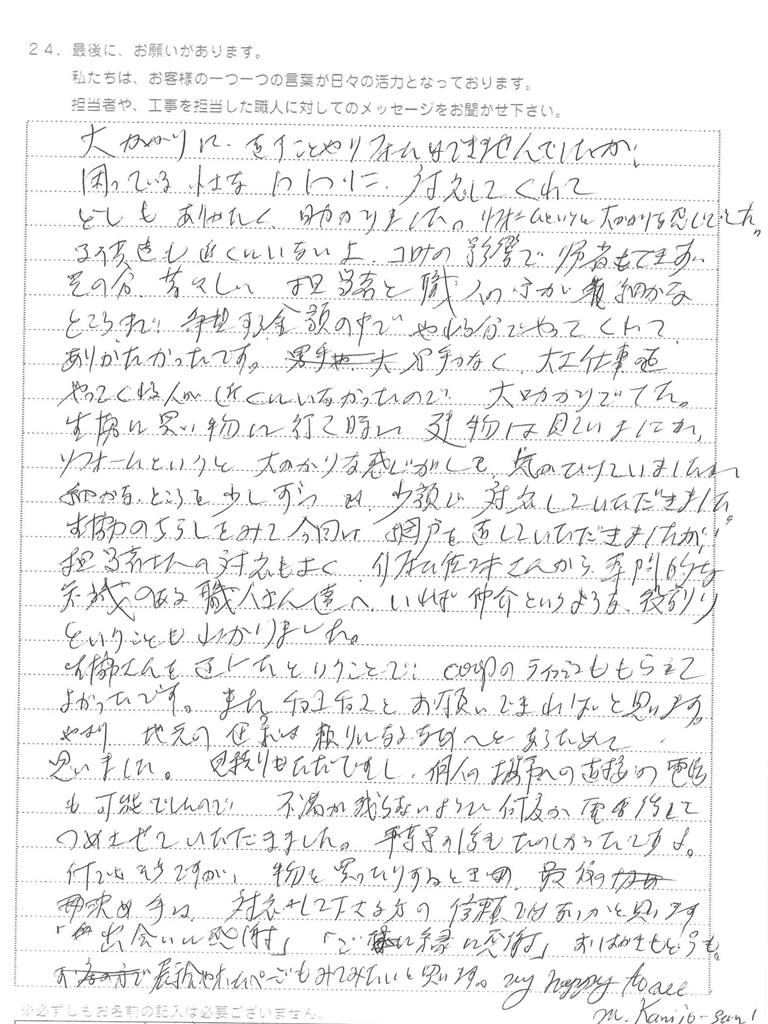 24．最後に、お願いがあります。
私たちは、お客様の一つ一つの言葉が日々の活力となっております。
担当者や、工事を担当した職人に対してのメッセージをお聞かせ下さい。
大がかりに、直すことやリフォームはできませんでしたが、
困っている 対応してくれて
とても ありがたく、助かりました。リフォームというと大がかりな感じでした。
も近くにいないし、コロナの影響で帰省もできず、
その分、若々しい 担当者と職人の方が 細かな
ところまで、希望する金額の中で やれる分でやってくれて、
ありがたかったです。 大工仕事を
やってくれる人が近くにいなかったので 大助かりでした。
生協に買い物に行く時に 建物は見ていましたが、
リフォームというと 大がかりな感じがして、気がひけていましたが
細かなところを少しずつ 少額で 対応していただきました。
生協のちらしをみて今回は網戸を直していただきましたが、
担当者さんの対応もよく、 さんから専門的な
知識のある職人さん達へ、いわば仲介というような、役割り
ということもわかりました。
生協さんを ということで、coopの ももらえて
よかったです。また、チョコチョコとお願いできればと思います。
やはり 地元の企業は頼りになる とあらためて
思いました。見積りもただですし、個人の携帯への直接の電話
も可能でしたので 不満が残らないように何度か電話して
つめさせていただきました。 もたのしかったですよ。
何でもそうですが、物を買ったりするときの、最後の
決め手は、対応して下さる方の信頼ではないかと思います
「出会いに感謝」「ご縁に感謝」おはがきもどうも。
やホームページもみてみたいと思います。 my happy to all
M. Kanijo-san!
※必ずしもお名前の記入は必要ございません。